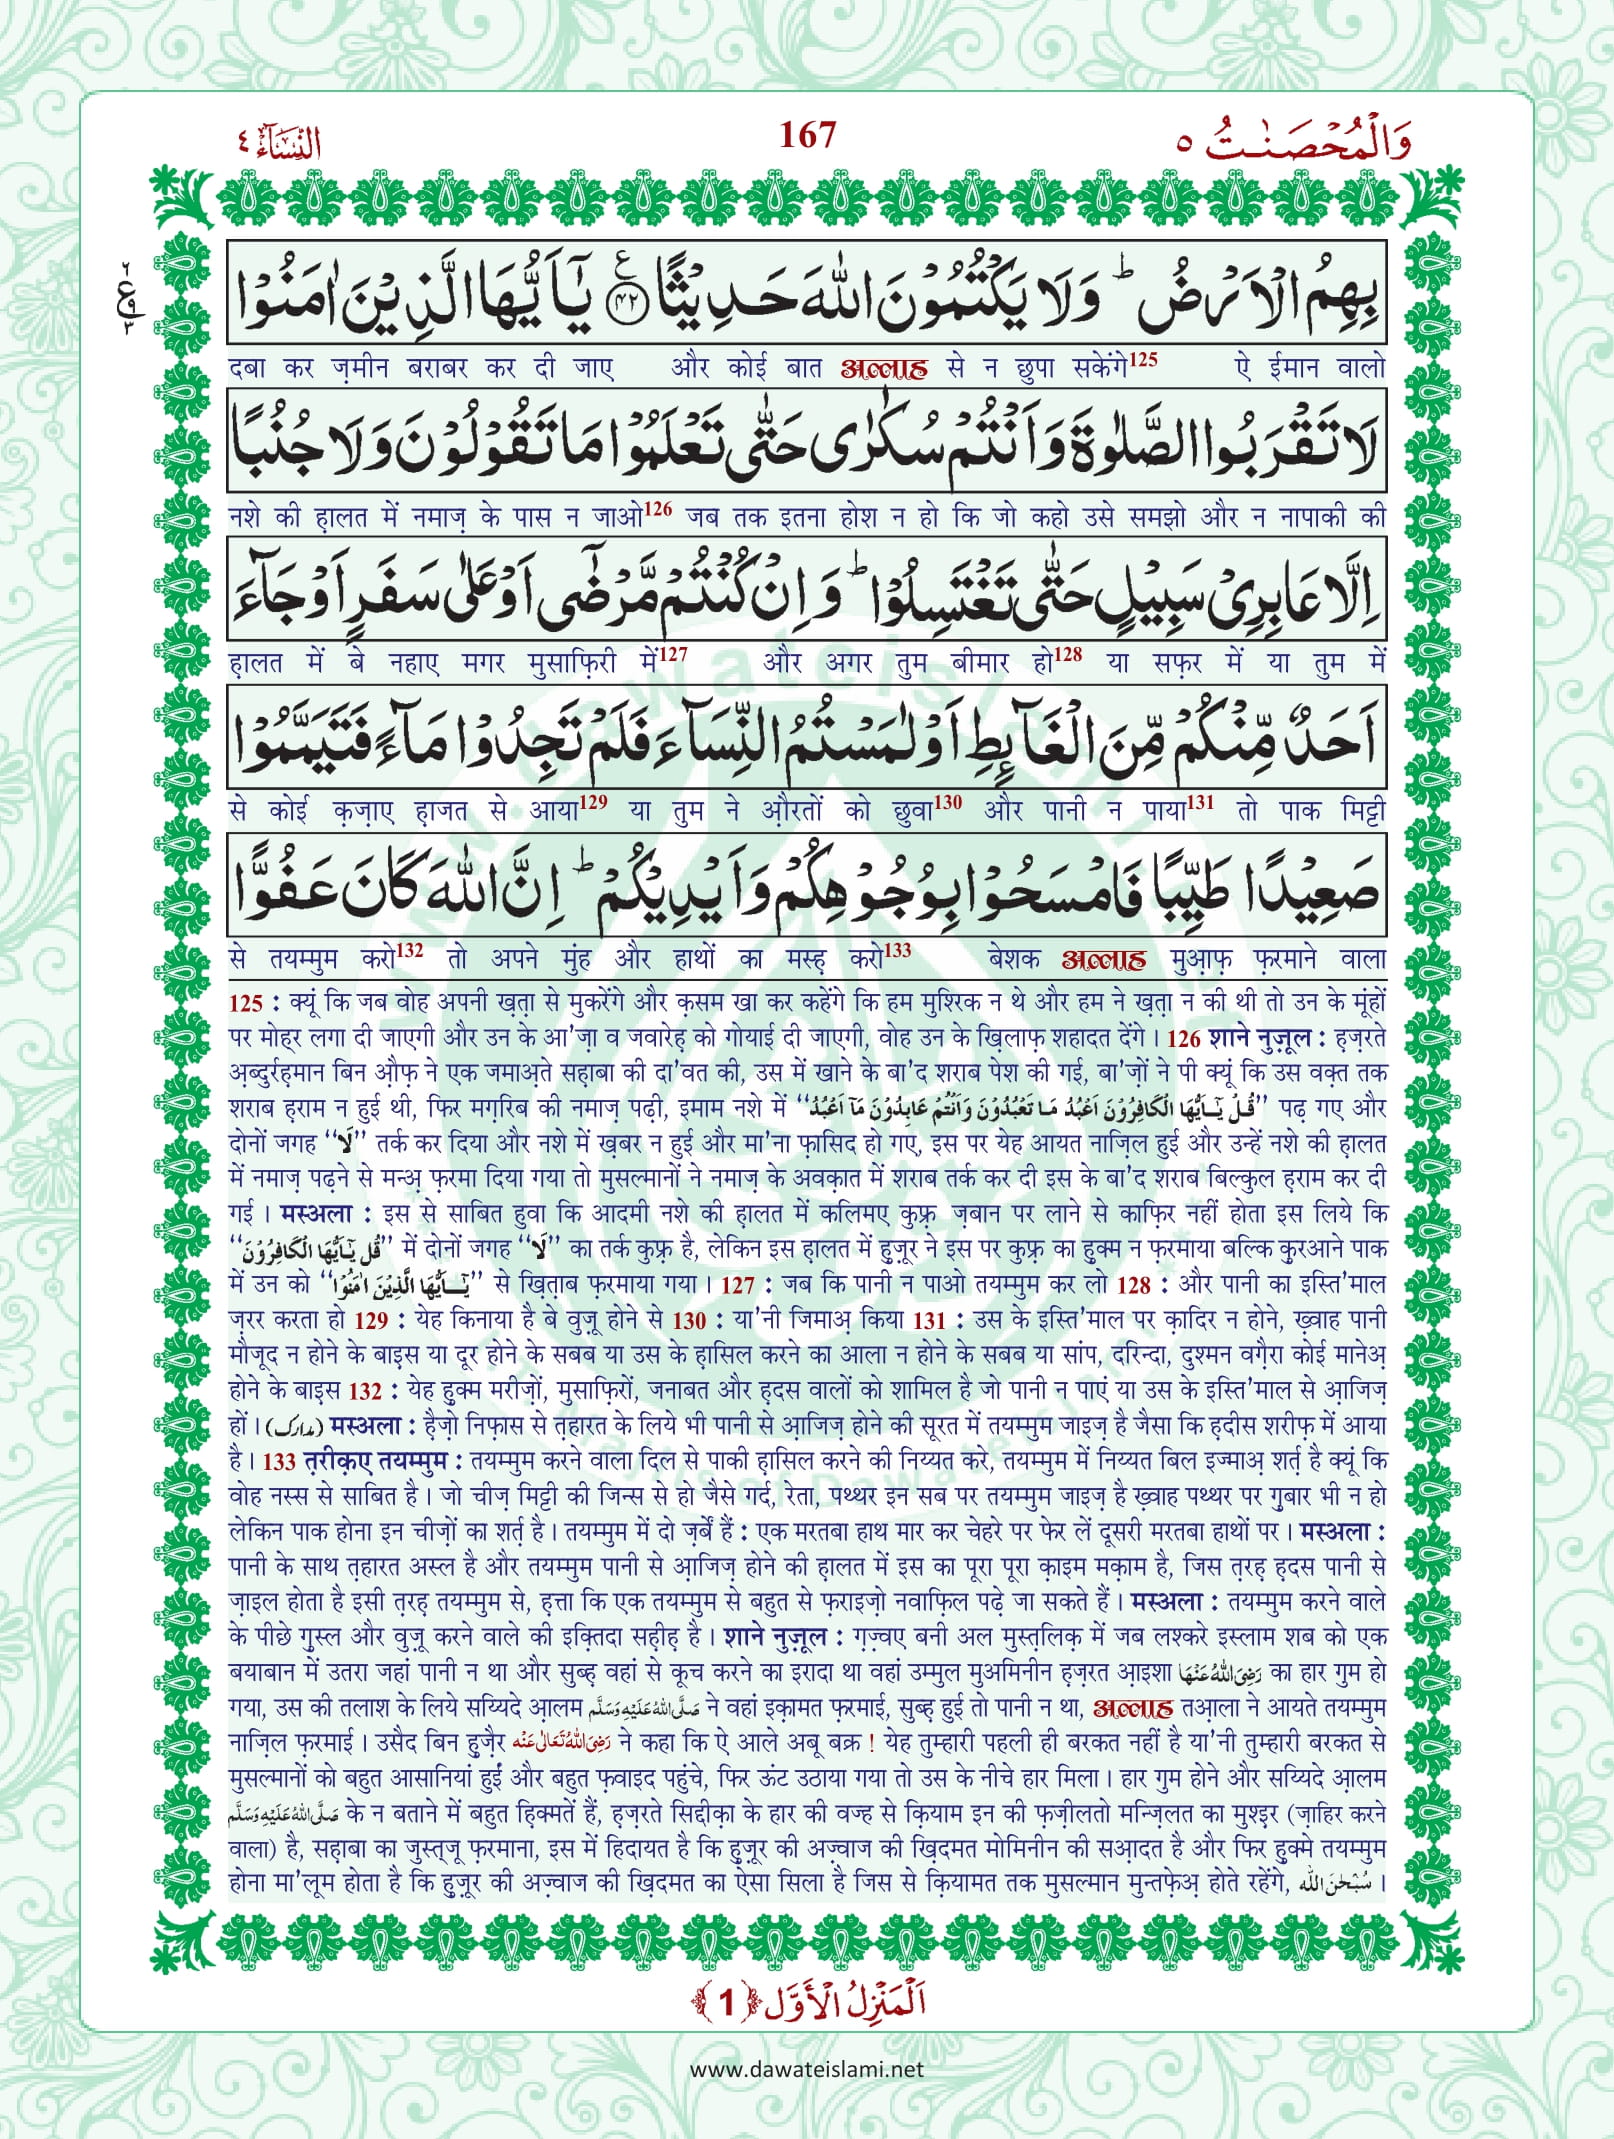 النِّسَآء ٤
167
وَالْمُحْصَنٰتُ ٥
بِهِمُ الْاَرْضُ ؕ وَلَا یَكْتُمُوْنَ اللّٰهَ حَدِیْثًا ﴿۴۲﴾ یٰۤاَیُّهَا الَّذِیْنَ اٰمَنُوْا
दबा कर ज़मीन बराबर कर दी जाए और कोई बात अल्लाह से न छुपा सकेंगे125 ऐ ईमान वालो
لَا تَقْرَبُوا الصَّلٰوةَ وَاَنْتُمْ سُكٰرٰى حَتّٰى تَعْلَمُوْا مَا تَقُوْلُوْنَ وَلَا جُنُبًا
नशे की हालत में नमाज़ के पास न जाओ126 जब तक इतना होश न हो कि जो कहो उसे समझो और न नापाकी की
اِلَّا عَابِرِیْ سَبِیْلٍ حَتّٰى تَغْتَسِلُوْا ؕ وَاِنْ كُنْتُمْ مَّرْضٰۤى اَوْ عَلٰى سَفَرٍ اَوْ جَآءَ
ह़ालत में बे नहाए मगर मुसाफ़िरी में127 और अगर तुम बीमार हो128 या सफ़र में या तुम में
اَحَدٌ مِّنْكُمْ مِّنَ الْغَآىٕطِ اَوْ لٰمَسْتُمُ النِّسَآءَ فَلَمْ تَجِدُوْا مَآءً فَتَیَمَّمُوْا
से कोई क़ज़ाए ह़ाजत से आया129 या तुम ने औ़रतों को छुवा130 और पानी न पाया131 तो पाक मिट्टी
صَعِیْدًا طَیِّبًا فَامْسَحُوْا بِوُجُوْهِكُمْ وَاَیْدِیْكُمْ ؕ اِنَّ اللّٰهَ كَانَ عَفُوًّا
से तयम्मुम करो132 तो अपने मुंह और हाथों का मस्ह़ करो133 बेशक अल्लाह मुआ़फ़ फ़रमाने वाला
125 : क्यूं कि जब वोह अपनी ख़त़ा से मुकरेंगे और क़सम खा कर कहेंगे कि हम मुश्रिक न थे और हम ने ख़त़ा न की थी तो उन के मूंहों
पर मोह्‌र लगा दी जाएगी और उन के आ'ज़ा व जवारेह़ को गोयाई दी जाएगी, वोह उन के ख़िलाफ़ शहादत देंगे । 126 शाने नुज़ूल : ह़ज़रते
अ़ब्दुर्रह़मान बिन औ़फ़ ने एक जमाअ़ते सह़ाबा की दा'वत की, उस में खाने के बा'द शराब पेश की गई, बा'ज़ों ने पी क्यूं कि उस वक़्त तक
शराब ह़राम न हुई थी, फिर मग़रिब की नमाज़ पढ़ी, इमाम नशे में ‘‘قُلْ يٰٓاَيُّهَا الْكَافِرُوْنَ اَعْبُدُ مَا تَعْبُدُوْنَ وَاَنْتُمْ عَابِدُوْنَ مَآ اَعْبُدُ’’ पढ़ गए और
दोनों जगह ‘‘لَا’’ तर्क कर दिया और नशे में ख़बर न हुई और मा'ना फ़ासिद हो गए, इस पर येह आयत नाज़िल हुई और उन्हें नशे की ह़ालत
में नमाज़ पढ़ने से मन्अ़ फ़रमा दिया गया तो मुसल्मानों ने नमाज़ के अवक़ात में शराब तर्क कर दी इस के बा'द शराब बिल्कुल ह़राम कर दी
गई । मस्अला : इस से साबित हुवा कि आदमी नशे की ह़ालत में कलिमए कुफ़्र ज़बान पर लाने से काफ़िर नहीं होता इस लिये कि
‘‘قُلْ يٰٓاَيُّهَا الْكَافِرُوْنَ’’ में दोनों जगह ‘‘لَا’’ का तर्क कुफ़्र है, लेकिन इस ह़ालत में हुज़ूर ने इस पर कुफ़्र का हुक्म न फ़रमाया बल्कि क़ुरआने पाक
में उन को ‘‘يٰٓاَيُّهَا الَّذِيْنَ اٰمَنُوْا’’ से ख़िताब फ़रमाया गया । 127 : जब कि पानी न पाओ तयम्मुम कर लो 128 : और पानी का इस्ति'माल
ज़रर करता हो 129 : येह किनाया है बे वुज़ू होने से 130 : या'नी जिमाअ़ किया 131 : उस के इस्ति'माल पर क़ादिर न होने, ख़्वाह पानी
मौजूद न होने के बाइस या दूर होने के सबब या उस के ह़ासिल करने का आला न होने के सबब या सांप, दरिन्दा, दुश्मन वग़ैरा कोई मानेअ़
होने के बाइस 132 : येह हुक्म मरीज़ों, मुसाफ़िरों, जनाबत और ह़दस वालों को शामिल है जो पानी न पाएं या उस के इस्ति'माल से आ़जिज़
हों । (مدارک) मस्अला : ह़ैज़ो निफ़ास से त़हारत के लिये भी पानी से आ़जिज़ होने की सूरत में तयम्मुम जाइज़ है जैसा कि ह़दीस शरीफ़ में आया
है । 133 त़रीक़ए तयम्मुम : तयम्मुम करने वाला दिल से पाकी ह़ासिल करने की निय्यत करे, तयम्मुम में निय्यत बिल इज्माअ़ शर्त़ है क्यूं कि
वोह नस्स से साबित है । जो चीज़ मिट्टी की जिन्स से हो जैसे गर्द, रेता, पथ्थर इन सब पर तयम्मुम जाइज़ है ख़्वाह पथ्थर पर ग़ुबार भी न हो
लेकिन पाक होना इन चीज़ों का शर्त़ है । तयम्मुम में दो ज़र्बें हैं : एक मरतबा हाथ मार कर चेहरे पर फेर लें दूसरी मरतबा हाथों पर । मस्अला :
पानी के साथ त़हारत अस्ल है और तयम्मुम पानी से आ़जिज़ होने की ह़ालत में इस का पूरा पूरा क़ाइम मक़ाम है, जिस त़रह़ ह़दस पानी से
ज़ाइल होता है इसी त़रह़ तयम्मुम से, ह़त्ता कि एक तयम्मुम से बहुत से फ़राइज़ो नवाफ़िल पढ़े जा सकते हैं । मस्अला : तयम्मुम करने वाले
के पीछे ग़ुस्ल और वुज़ू करने वाले की इक़्तिदा सह़ीह़ है । शाने नुज़ूल : ग़ज़्वए बनी अल मुस्त़लिक़ में जब लश्करे इस्लाम शब को एक
बयाबान में उतरा जहां पानी न था और सुब्ह़ वहां से कूच करने का इरादा था वहां उम्मुल मुअमिनीन ह़ज़रत आ़इशा رَضِیَ اللّٰهُ عَنْهَا का हार गुम हो
गया, उस की तलाश के लिये सय्यिदे आ़लम صَلَّی اللّٰهُ عَلَیْهِ وَسَلَّم ने वहां इक़ामत फ़रमाई, सुब्ह़ हुई तो पानी न था, अल्लाह तआ़ला ने आयते तयम्मुम
नाज़िल फ़रमाई । उसैद बिन हुज़ैर رَضِیَ اللّٰهُ تَعَالٰی عَنْه ने कहा कि ऐ आले अबू बक्र ! येह तुम्हारी पहली ही बरकत नहीं है या'नी तुम्हारी बरकत से
मुसल्मानों को बहुत आसानियां हुईं और बहुत फ़वाइद पहुंचे, फिर ऊंट उठाया गया तो उस के नीचे हार मिला । हार गुम होने और सय्यिदे आ़लम
صَلَّی اللّٰهُ عَلَیْهِ وَسَلَّم के न बताने में बहुत ह़िक्मतें हैं, ह़ज़रते सिद्दीक़ा के हार की वज्ह से क़ियाम इन की फ़ज़ीलतो मन्ज़िलत का मुश्इर (ज़ाहिर करने
वाला) है, सह़ाबा का जुस्त्जू फ़रमाना, इस में हिदायत है कि हुज़ूर की अज़्वाज की ख़िदमत मोमिनीन की सआ़दत है और फिर हुक्मे तयम्मुम
होना मा'लूम होता है कि हुज़ूर की अज़्वाज की ख़िदमत का ऐसा सिला है जिस से क़ियामत तक मुसल्मान मुन्तफ़ेअ़ होते रहेंगे, سُبْحٰنَ اللّٰه ।
اَلْمَنْزِلُ الْاَوَّل ﴿1﴾
www.dawateislami.net